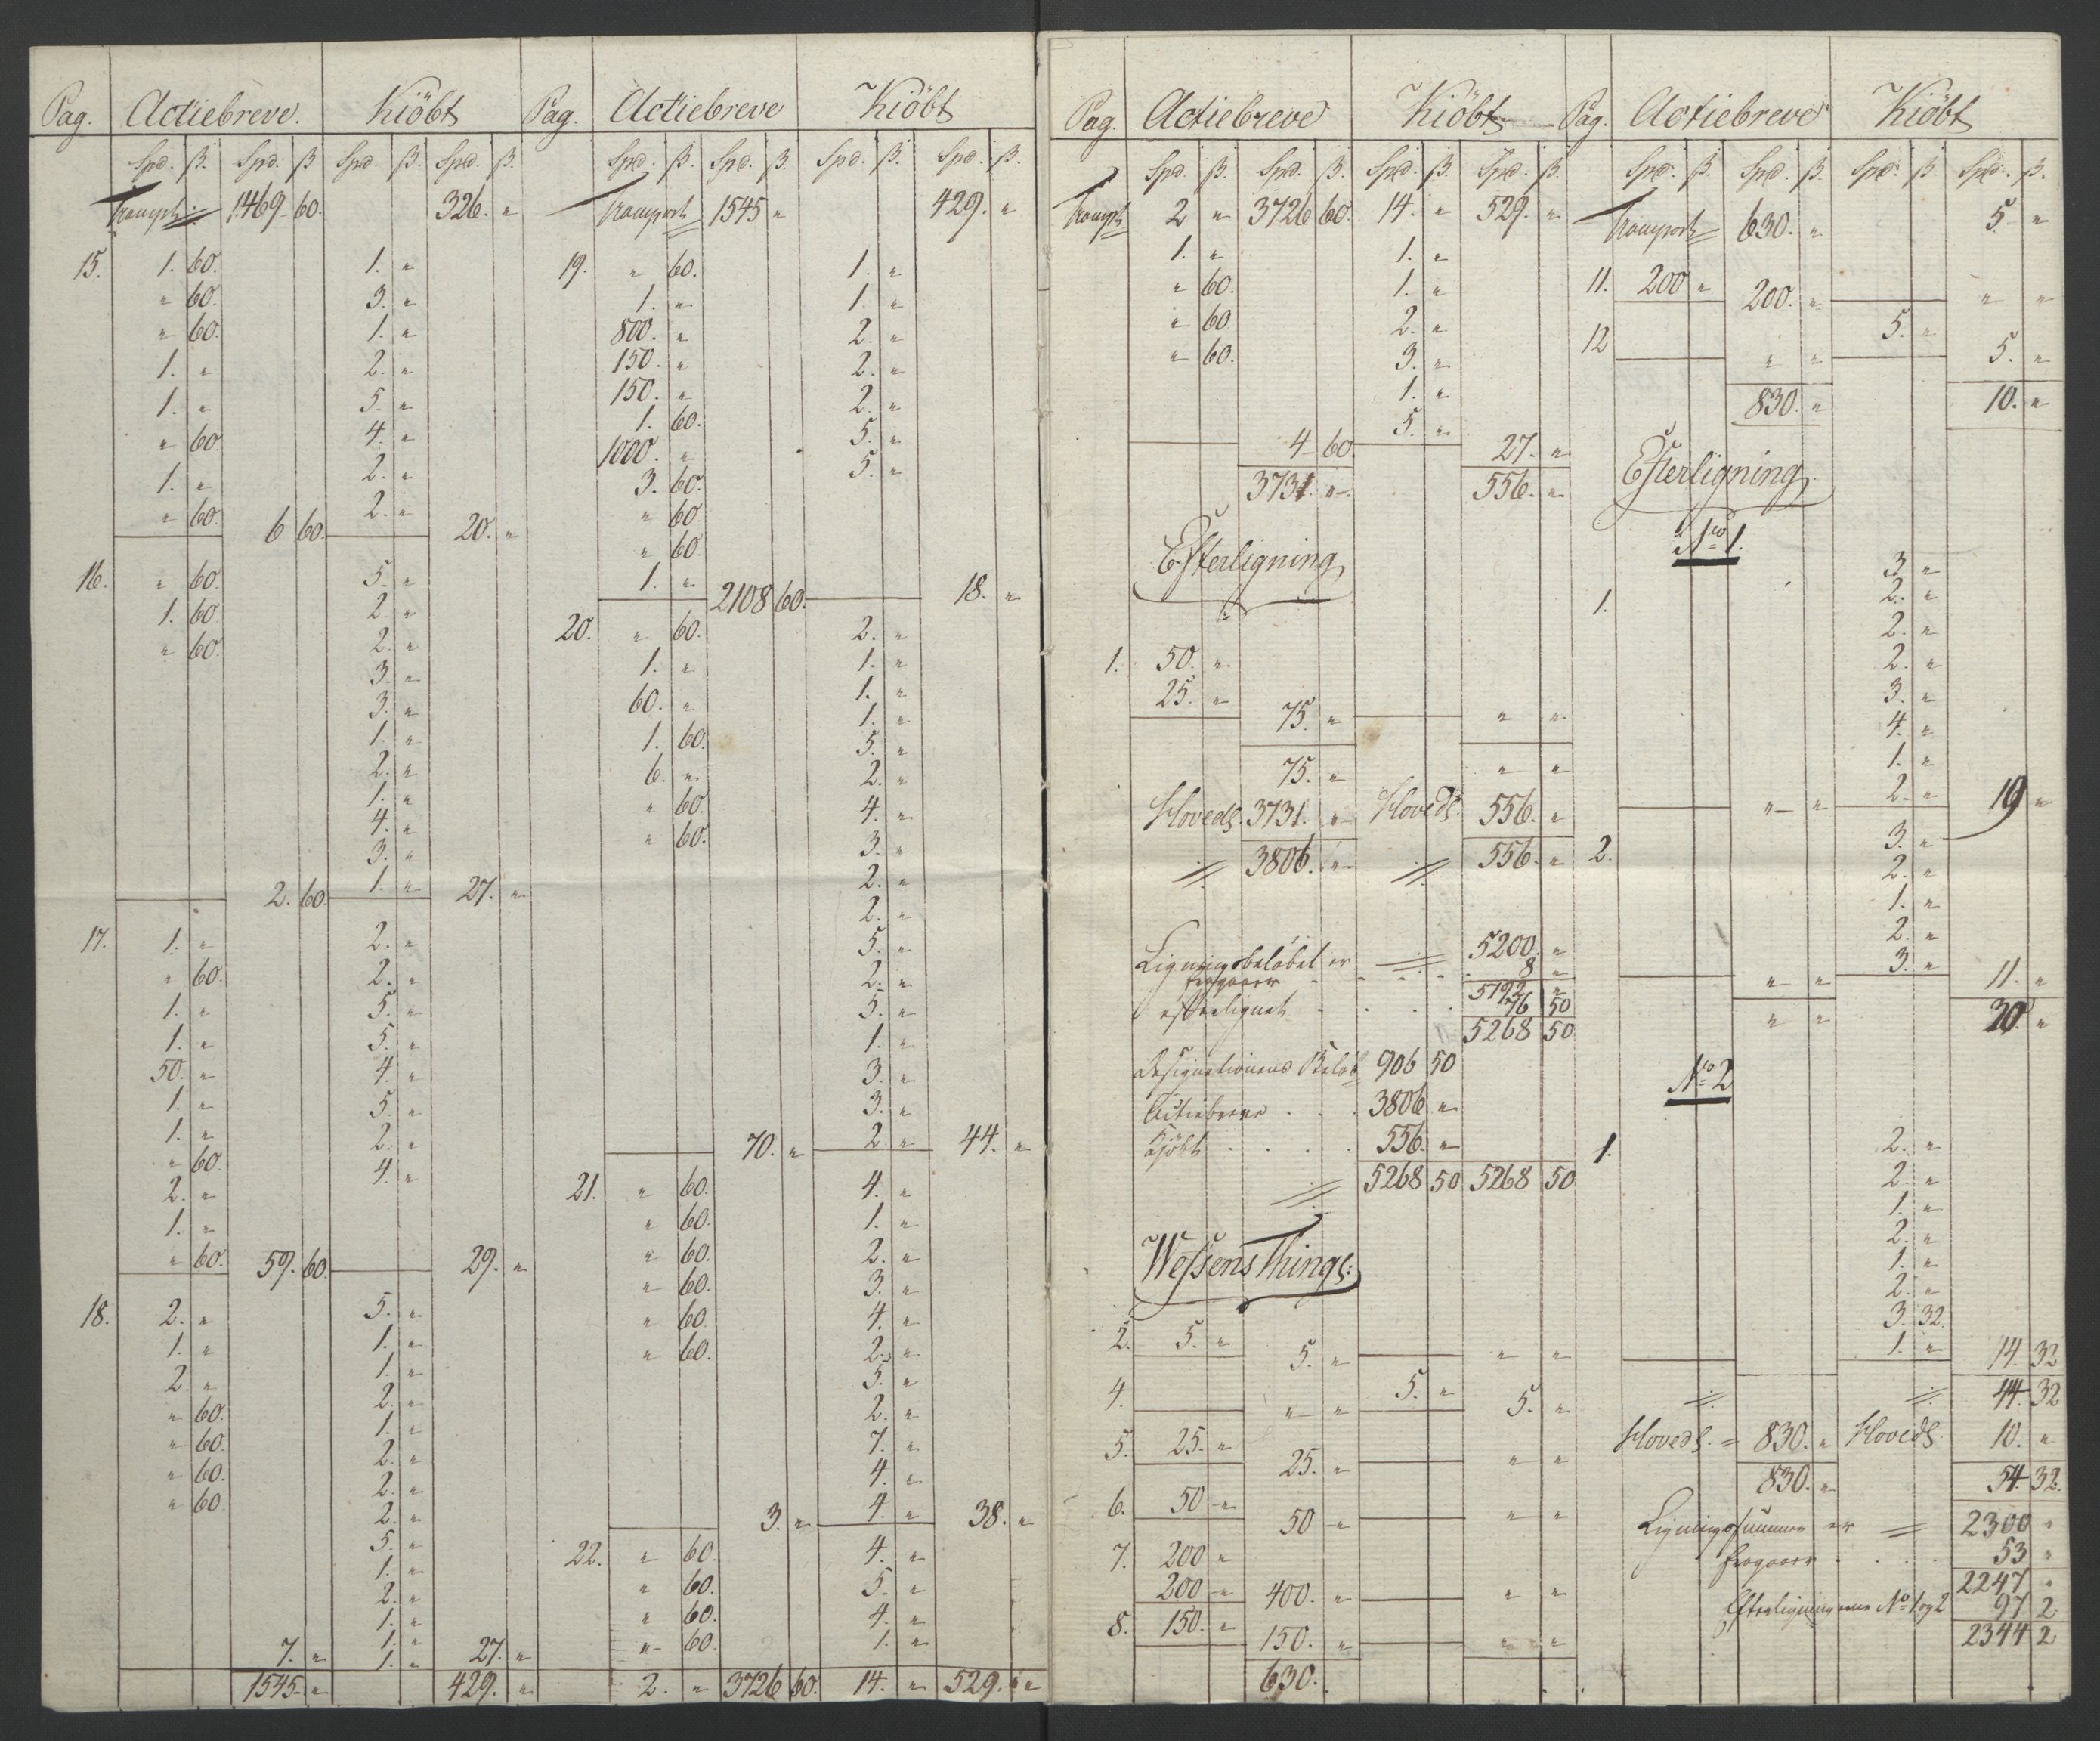 Pag. Actiebreve. Kiöbt
Spd. β. Spd. β Spd. β. Spd. β.
Transpt: 1469 60. 326. "
15. 1. 60. 1. "
" 60. 3. "
" 60. 1. "
1. " 2. "
1. " 5. "
" 60 4. "
1. " 2. "
" 60. 6 60. 2. " 20. "
16. " 60. 5. "
1. 60 2. "
" 60. 2. "
3. "
3. "
1. "
2. "
1. "
4. "
3. "
2. 60. 1. " 27. "
17. 1. " 2. "
" 60. 2. "
1. " 5. "
1. " 5. "
50. " 4. "
1. " 5. "
1. " 2. "
" 60. 4. "
2. "
1. "
" 60. 59. 60. 29. "
18. 2. " 5. "
1. " 1. "
2. " 1. "
" 60. 2. "
" 60. 1. "
" 60. 2. "
" 60 2. "
2. "
5. "
1. "
2. "
1. "
1. "
7. " 1. " 27. "
1545 " 429. "
Pag. Actiebreve Kiöbt
Spd. β. Spd. β. Spd. β. Spd. β.
Transport 1545 " 429. "
19. " 60. 1. "
1. " 1. "
800. " 2. "
150. " 2. "
150. " 2. "
1. 60. 5. "
1000. " 5. "
3. 60.
" 60.
" 60.
1. " 2108 60. 18. "
20. " 60. 2. "
1. " 1. "
60. " 1. "
1. 60. 1. "
6. " 5. "
" 60. 2. "
" 60. 4. "
3. "
2. "
2. "
5. "
2. "
5. "
1. "
3. "
3. "
70. " 2 " 44. "
21. " 60. 4. "
" 60. 1. "
" 60. 2. "
" 60. 3. "
" 60. 4. "
" 60. 2. "
5. "
2. "
7. "
4. "
3. " 4. " 38. "
22. " 60. 4. "
" 60. 5. "
" 60. 4. "
" 60. 1. "
2. " 3726 60. 14. " 529. "
Pag. Actiebreve Kiöbt
Spd. β. Spd. β. Spd. β. Spd. β.
Transpt 2 " 3726 60. 14. " 529. "
1. " 1. "
" 60. 1. "
" 60. 2. "
" 60. 3. "
1. "
5. "
4 60 27. "
3731. " 556. "
Efterligning
1. 50. "
25. "
75. " " "
75. " " "
Hoveds. 3731. " Hoveds. 556. "
3806. " 556. "
Ligningsbeløbet er 5200. "
fragaaer 8 "
5192 "
efterlignet 76 50
5268 50
Designationens Beløb 906 50
Actiebreve 3806 "
Kjöbt 556. "
5268 50 5268 50
Wessens Things:
2. 5. " 5. " " "
4. " " 5. " 5. "
5. 25. " 25. " " "
6. 50 " 50 " " "
7. 200 "
200 " 400. " " "
8. 150. " 150. " " "
630.
Pag. Actiebreve Kiöbt
Spd. β. Spd. β. Spd. β. Spd. β.
Transport 630. " 5 "
11. 200 " 200. " " "
12 " " 5. " 5. "
830. " 10. "
Efterligning
No 1.
1. 3 "
2. "
2. "
2. "
3. "
4. "
1. "
" " 2. " 19 "
2. 3. "
2. "
1. "
2. "
" " 3. " 11. "
" " 30. "
No 2
1. 2. "
2. "
1. "
2. "
1. "
2. "
3. 32.
1. " 14. 32
44. 32
Hoveds. = 830. " Hoveds. 10. "
830. " 54. 32.
Ligningssummen er 2300 "
fragaaer 53 "
2247 "
Efterligningerne No 1 og 2 97 2
2344 2